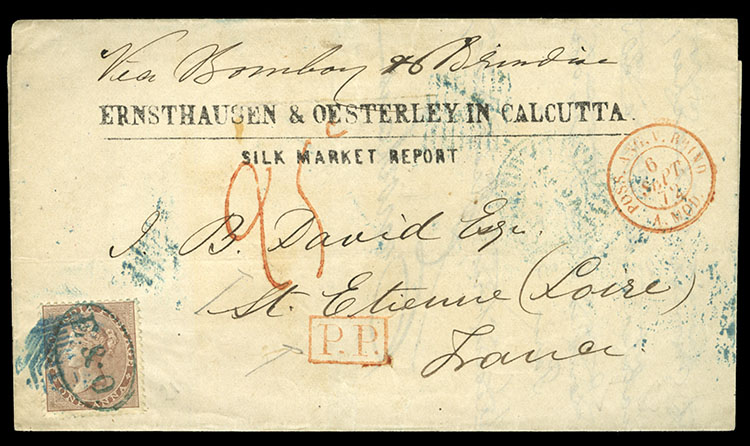 Via Bombay & Brindisi
ERNSTHAUSEN & OESTERLEY IN CALCUTTA.
SILK MARKET REPORT
POSS. ANG. V. BRIND
6
SEPT.
72
A. MOD.
95 c
J. B. David Esqr.
St. Etienne (Loire)
P.P.
France
E & O
ONE ANNA